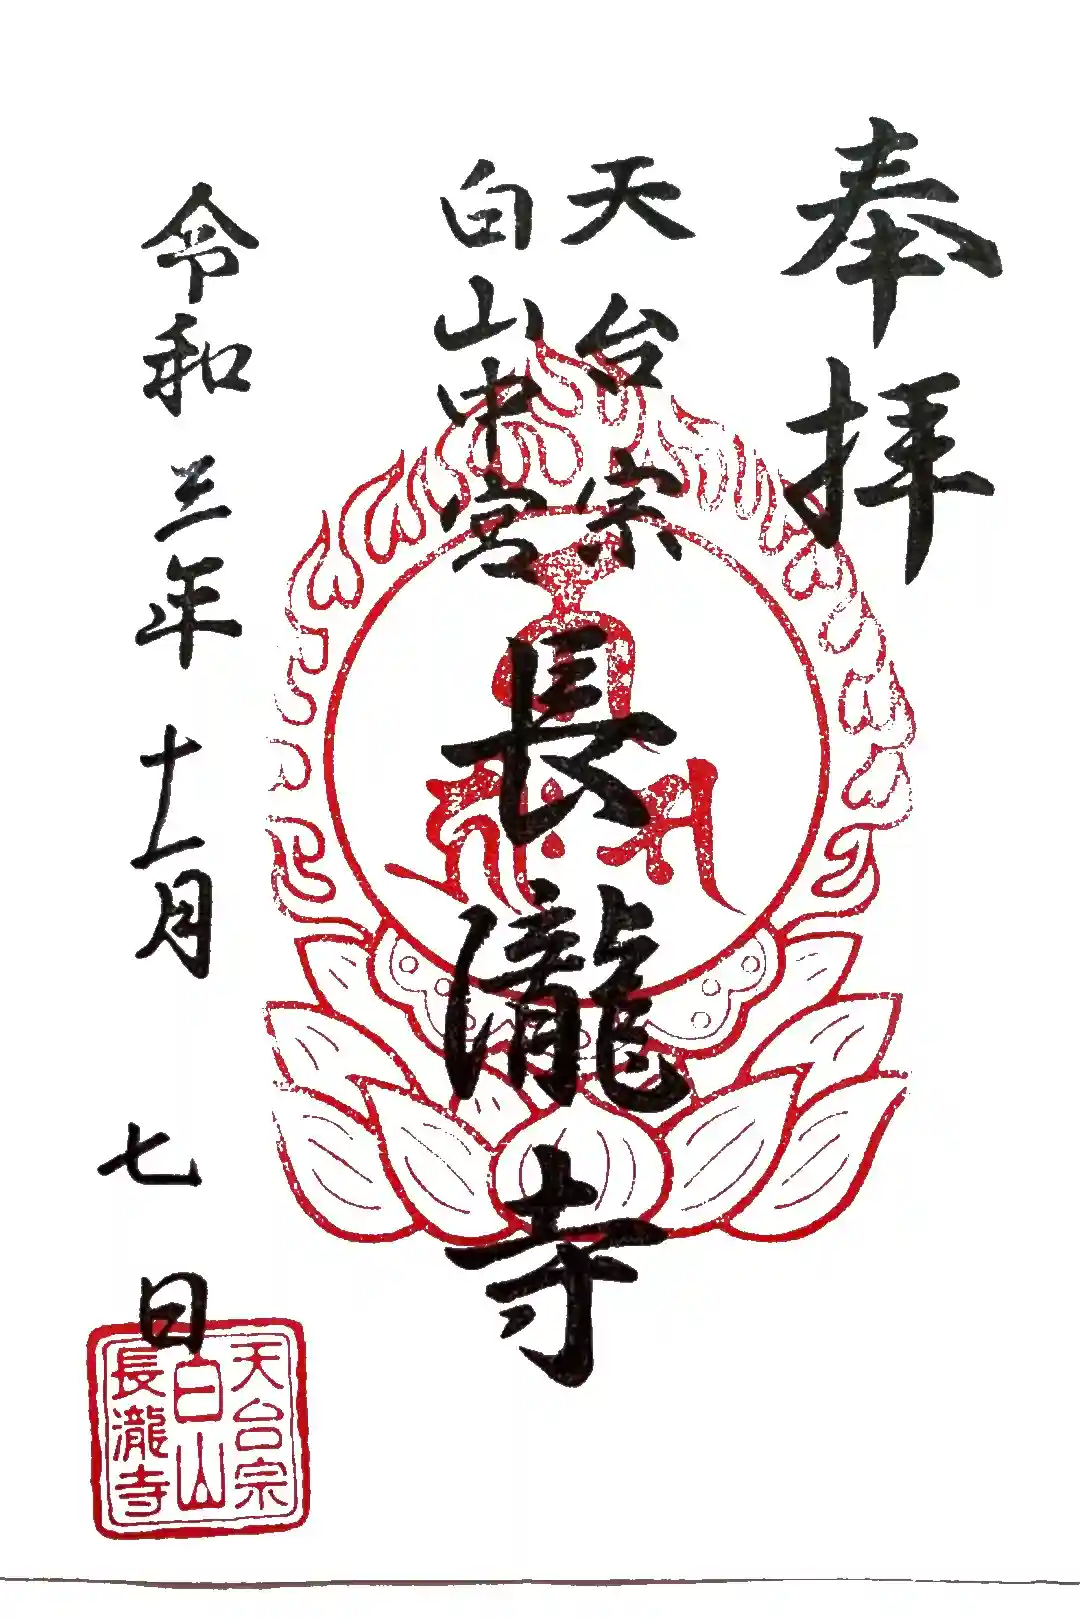 奉拝
天台宗
白山中宮
長瀧寺
令和三年 十一月 七 日
天台宗
白山
長瀧寺